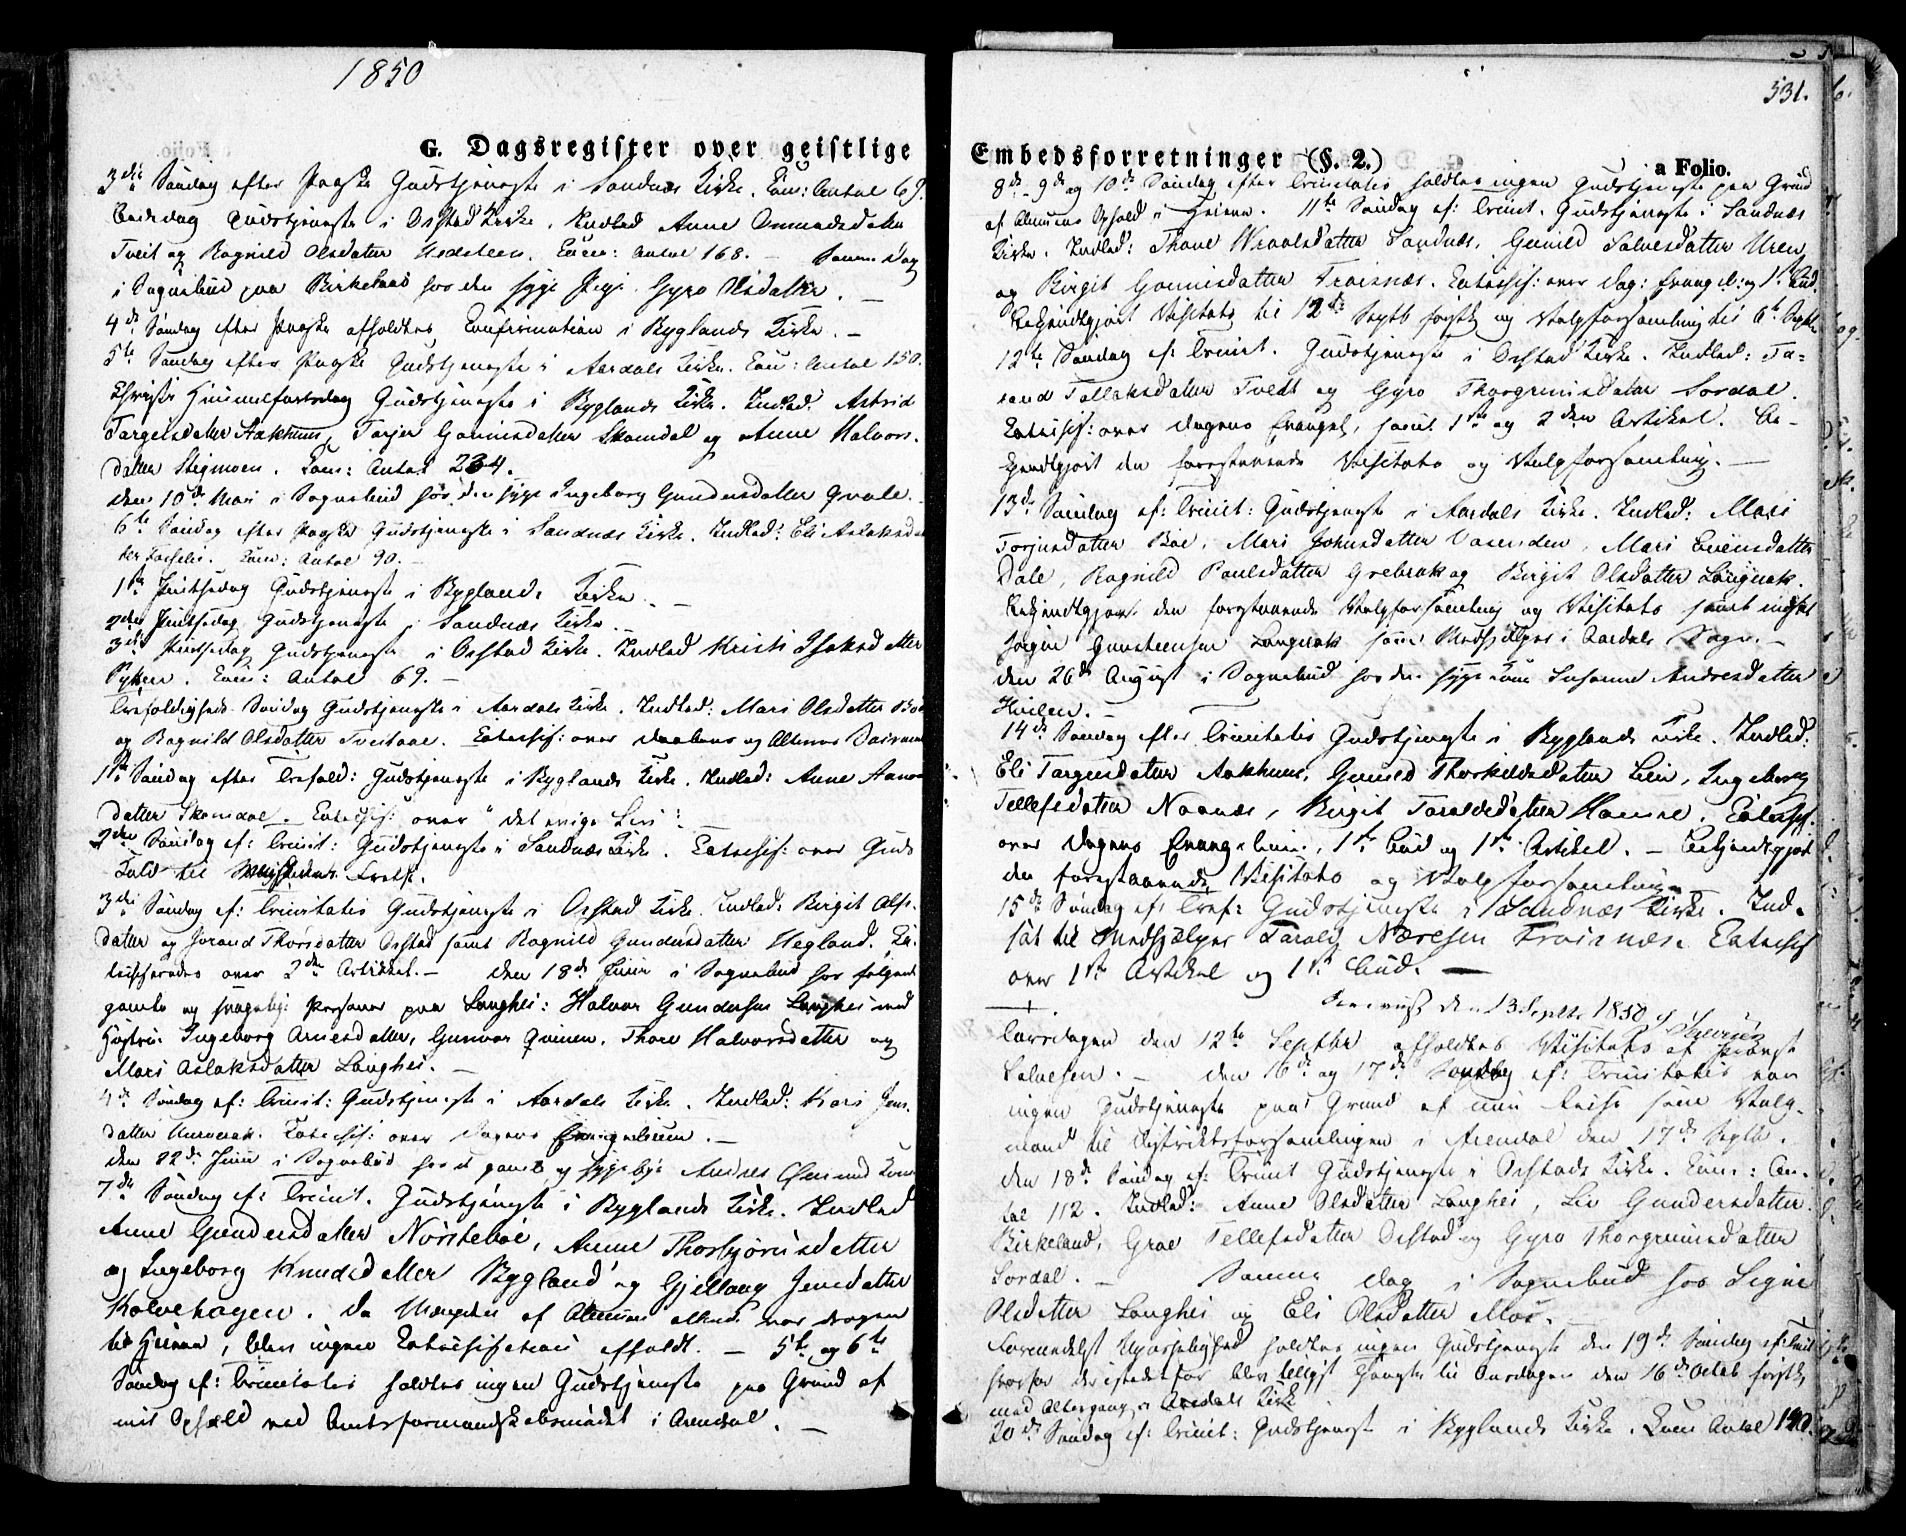 1850
G. Dagsregister over geistlige
3die Søndag efter Paaske Gudstjeneste i Sandnæs Kirke. Com: Antal 69.
Bededag Gudstjeneste i Østad Kirke. Indled Anne Osmundsdatter
Tveit og Ragnild Olsdatter Com: Antal 168. — Samme Dag
i Sognebud paa Birkeland hos den syge Pige Gyro Olsdatter. —
4de Søndag efter Paaske afholdtes Confirmation i Byglands Kirke. —
5te Søndag efter Paaske Gudstjeneste i Aardals Kirke. Com: Antal 150.
Christi Himmelfartsdag Gudstjeneste i Byglands Kirke. Indled. Astrid
Targeisdatter Aakhuus, Tarjer Gunnisdatter Skomdal og Anne Halvors-
datter Stigmoen. Com: Antal 234.
den 10de Mai i Sognebud hos den syge Ingeborg Gundersdatter Qvale.
6te Søndag efter Paaske Gudstjeneste i Sandnæs Kirke. Indled: Eli Aslaksdat
ter Com: Antal 90. —
1ste Pintsedag Gudstjeneste i Byglands Kirke. —
2den Pintsedag Gudstjeneste i Sandnæs Kirke. —
3die Pintsedag Gudstjeneste i Østad Kirke. Indled Kristi Isaksdatter
Com: Antal 69. —
Trefoldigheds Søndag Gudstjeneste i Aardals Kirke. Indled: Mari Olsdatter Bøe
og Ragnild Olsdatter Tveitaae. Catechis: over Daabens og Alterens
1ste Søndag efter Trefold: Gudstjeneste i Byglands Kirke. Indled: Anne
datter Skomdal. Catechis: over "det evige Liv".
2den Søndag ef: Trinit: Gudstjeneste i Sandnæs Kirke. Catechis: over Guds
til Menneskenes Frelse.
3die Søndag ef: Trinitatis Gudstjeneste i Østad Kirke. Indled: Birgit Ols-
datter og Jorand Thorsdatter Østad samt Ragnild Gundersdatter Hegland. Ca-
techiseredes over 2den Artikkel. — den 18de Juni i Sognebud hos følgende
gamle og svagelige Personer paa Langhei: Halvor Gundersen Langhei med
Hustru Ingeborg Arnesdatter, Gunvor Thore Halvorsdatter og
Mari Aslaksdatter Langhei. —
4de Søndag ef: Trinit: Gudstjeneste i Aardals Kirke. Indled: Kari Jens-
datter Catechis: over Dagens Evangelium. —
den 22de Juni i Sognebud hos gamle og sygelige
7de Søndag ef: Trinit. Gudstjeneste i Byglands Kirke. Indled
Anne Gundersdatter Nørstebøe, Anne Thorbjørnsdatter
og Ingeborg Knudsdatter Bygland og Gjellaug Jensdatter
Kolvehagen. Da Mængden af Almuen alt var dragen
til Heiene, blev ingen Catechisation afholdt. — 5te og 6te
Søndag ef: Trinitatis holdtes ingen Gudstjeneste paa Grund af
mit Ophold ved Amtsformandskabsmødet i Arendal. —
531.
Embedsforretninger (§. 2.)
a Folio.
8de 9de og 10de Søndag efter Trinitatis holdtes ingen Gudstjeneste paa Grund
af Almuens Ophold i Heiene. 11te Søndag ef: Trinit. Gudstjeneste i Sandnæs
Kirke. Indled: Thone Sandnæs, Gunild Salvesdatter Uren
og Birgit Gunnisdatter Frøisnæs. Catechis: over Dag: Evangel: og 1ste Bud.
Bekjendtgjort Visitats til 12te Septb førstk og Valgforsamling til 6te Septbr
12te Søndag ef: Trinit. Gudstjeneste i Østad Kirke. Indled: To-
rand Tallaksdatter Tvedt og Gyro Thorgrimsdatter Sordal.
Catechis: over dagens Evangel, samt 1ste og 2den Artikel. Be-
kjendtgjort den forestaaende Visitats og Valgforsamling. —
13de Søndag ef: Trinit: Gudstjeneste i Aardals Kirke. Indled: Mari
Torjusdatter Bøe, Mari Johnsdatter Vasenden, Mari Evensdatter
Dale, Ragnild Paulsdatter Grebrok og Birgit Olsdatter Langerak.
Bekjendtgjort den forestaaende Valgforsamling og Visitats samt indsat
Jørgen Gunsteensen Langerak som Medhjælper i Aardals Sogn. —
den 26de August i Sognebud hos den syge Susanne Andersdatter
Hvilen. —
14de Søndag efter Trinitatis Gudstjeneste i Byglands Kirke. Indled:
Eli Targeisdatter Aakhuus, Gunild Thorkildsdatter Lien, Ingeborg
Tellefsdatter Noanæs, Birgit Taraldsdatter Hamre. Catechis.
over Dagens Evangelium, 1ste Bud og 1ste Artikel. — Bekjendtgjort
den forestaaende Visitats og Valgforsamling.
15de Søndag ef: Tref: Gudstjeneste i Sandnæs Kirke. Ind-
sat til Medhjælper Tarald Næresen Frøisnæs. Catechis
over 1ste Artikel og 1ste Bud. —
den 13 Septbr 1850
Torsdagen den 12te Septbr afholdtes Visitats af Provst
Salvesen. — den 16de og 17de Søndag ef: Trinitatis var
ingen Gudstjeneste paa Grund af min Reise som Valg-
mand til Distriktsforsamlingen i Arendal den 17de Septb.
den 18de Søndag ef: Trinit Gudstjeneste i Østads Kirke. Com: An-
tal 112. Indled: Anne Olsdatter Langhei, Liv Gundersdatter
Birkeland, Groe Tellefsdatter Østad og Gyro Thorgrimsdatter
Sordal. — Samme Dag i Sognebud hos Signe
Olsdatter Langhei og Eli Olsdatter Moe. —
Formedelst Upasselighed holdtes ingen Gudstjeneste den 19de Søndag ef: Trinit
hvorfor der istedetfor blev tillyst Tjeneste til Onsdagen den 16de Octob førstk
med Altergang i Aardals Kirke
20de Søndag ef: Trinit: Gudstjeneste i Byglands Kirke. Com Antal 190.